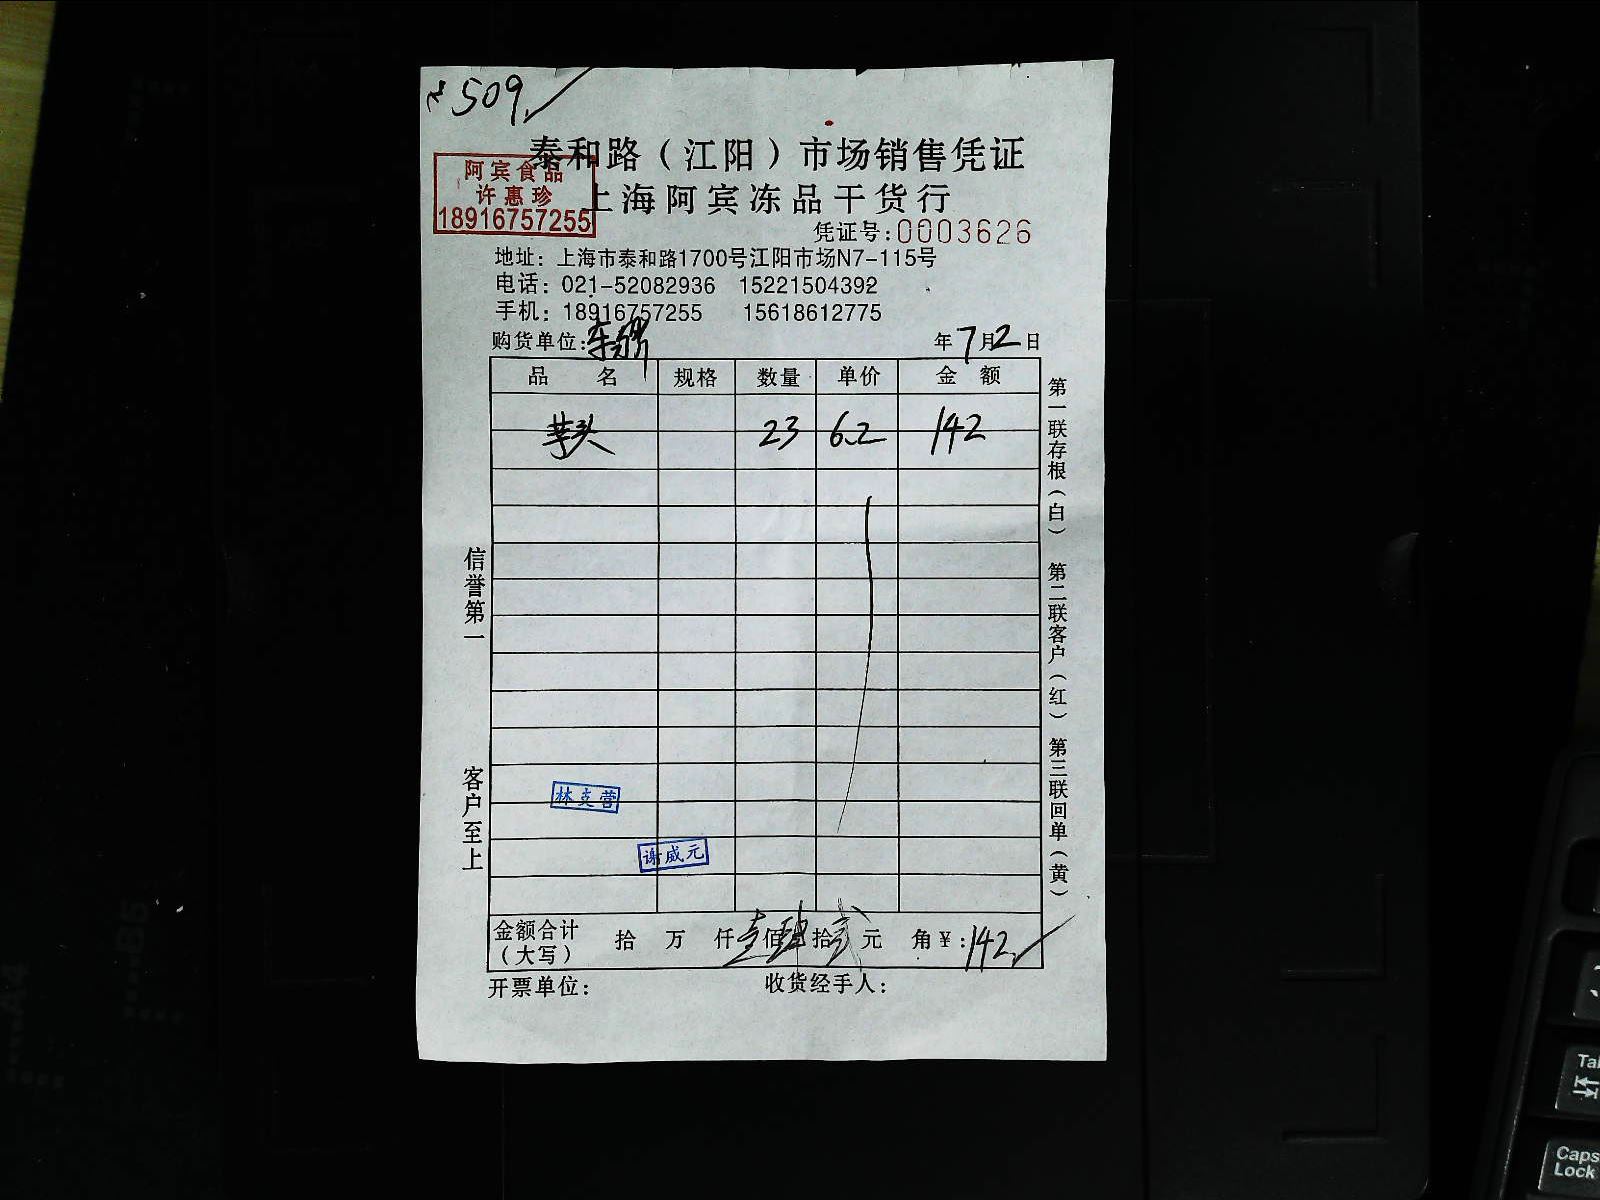 509
泰和路（江阳）市场销售凭证
阿宾食品
许惠珍
18916757255
上海阿宾冻品干货行
凭证号:0003626
地址：上海市泰和路1700号江阳市场N7-115号
电话：021-52082936 15221504392
手机：18916757255 15618612775
购货单位:
年7月2日
品 名 规格 数量 单价 金 额
芋头 23 6.2 142
第一联存根（白） 第二联客户（红） 第三联回单（黄）
信誉第一
客户至上
林支营
谢威元
金额合计（大写） 拾 万 仟壹佰肆拾贰元 角¥:142
开票单位: 收货经手人:
A4
B5
Caps
Lock